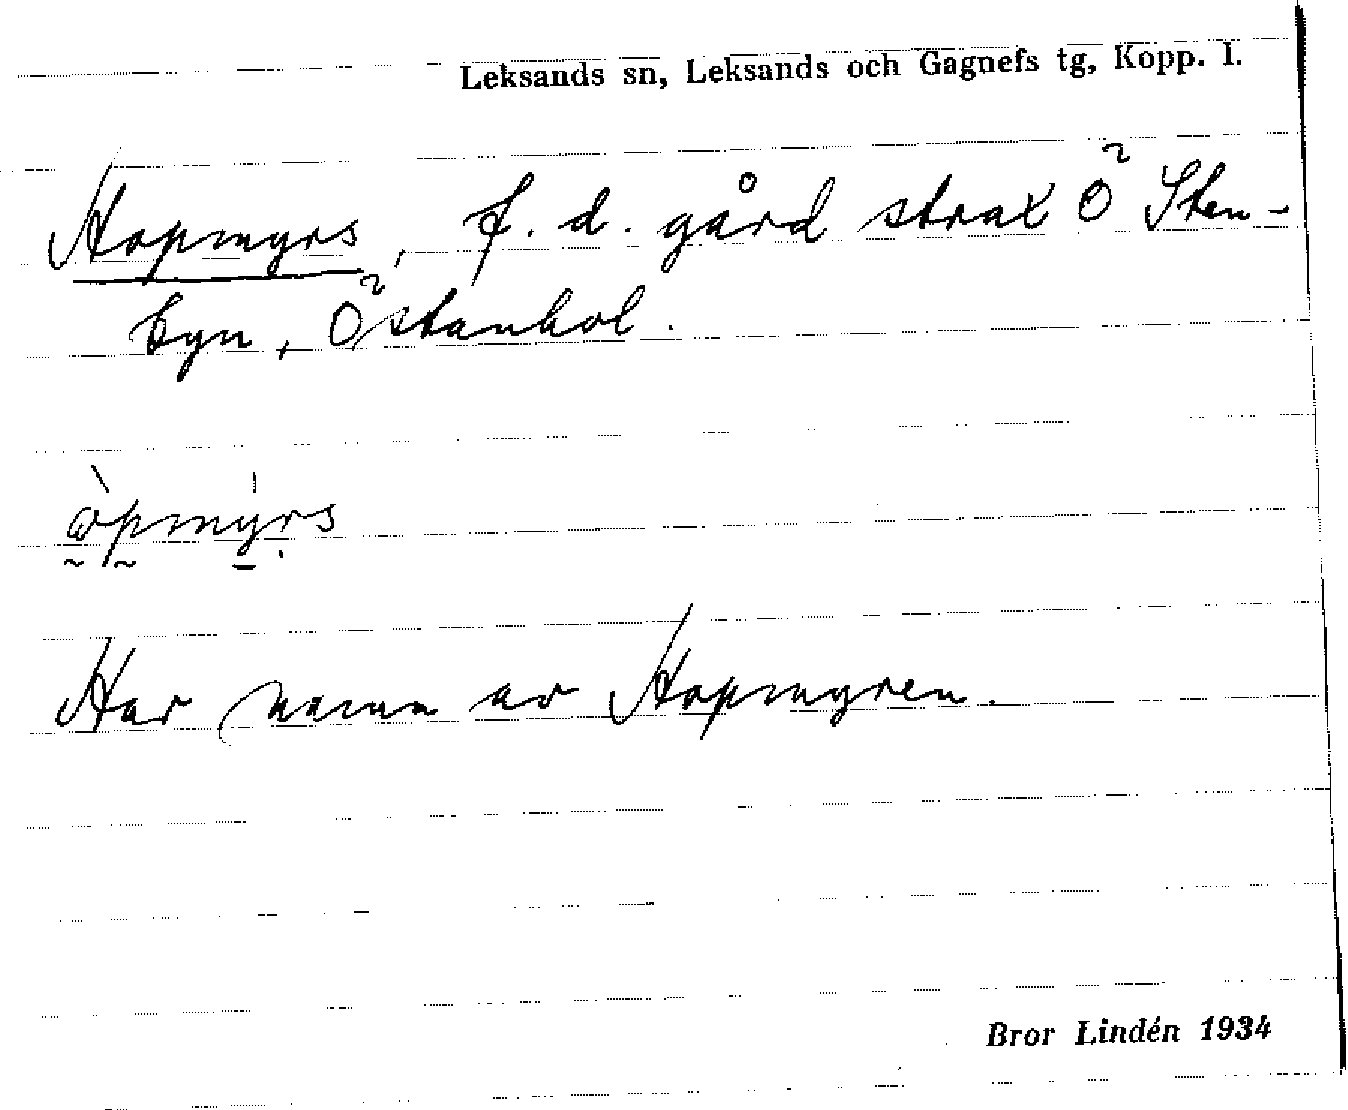 Leksands sn, Leksands och Gagnefs tg, Kopp. l.
Hopmyrs, f. d. gård strax Ö Sten-
byn, Östanhol.
òpmyrs
Har namn av Hopmyren.
Bror Lindén 1934